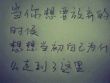 当你想要放弃的
时候
想想当初自己为什
么走到了这里